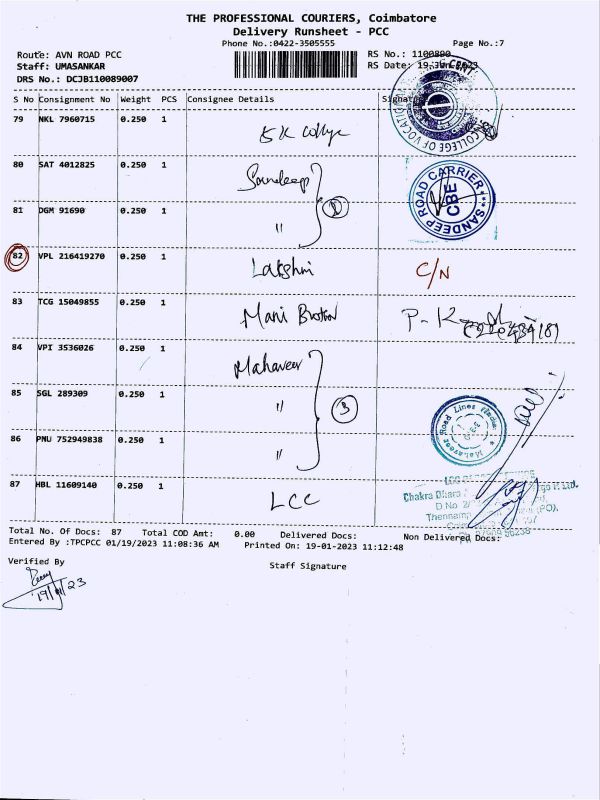 THE PROFESSIONAL COURIERS, Coimbatore
Delivery Runsheet - PCC
Phone No.:0422-3505555
Page No.:7
Route: AVN ROAD PCC
RS No.: 1100890
Staff: UMASANKAR
RS Date: 19
DRS No.: DCJB110089007
S No Consignment No Weight PCS Consignee Details Signature
79 NKL 7960715 0.250 1
80 SAT 4012825 0.250 1 Sandeep
SANDEEP ROAD CARRIER CBE
81 DGM 91690 0.250 1 "
2
82 VPL 216419270 0.250 1 Lakshmi C/N
83 TCG 15049855 0.250 1 Mani
84 VPI 3536026 0.250 1 Mahaveer
85 SGL 289309 0.250 1 "
3
Mahaveer Road Lines
86 PNU 752949838 0.250 1 "
87 HBL 11609140 0.250 1 LCC
Chakra Dhara
Total No. Of Docs: 87 Total COD Amt: 0.00 Delivered Docs: Non Delivered Docs:
Entered By :TPCPCC 01/19/2023 11:08:36 AM Printed On: 19-01-2023 11:12:48
Verified By
Staff Signature